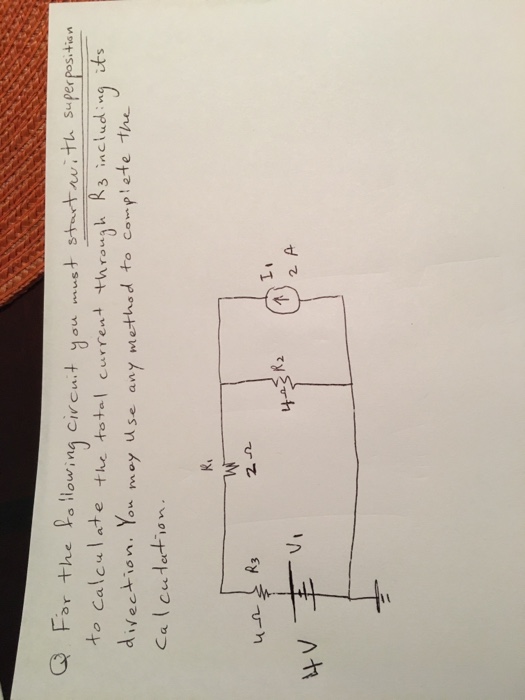 Q For the following circuit you must start with superposition
to calculate the total current through R3 including its
direction. You may use any method to complete the
calculation.
R1
2Ω
4Ω R3
4Ω R2
I1
2 A
4V
V1